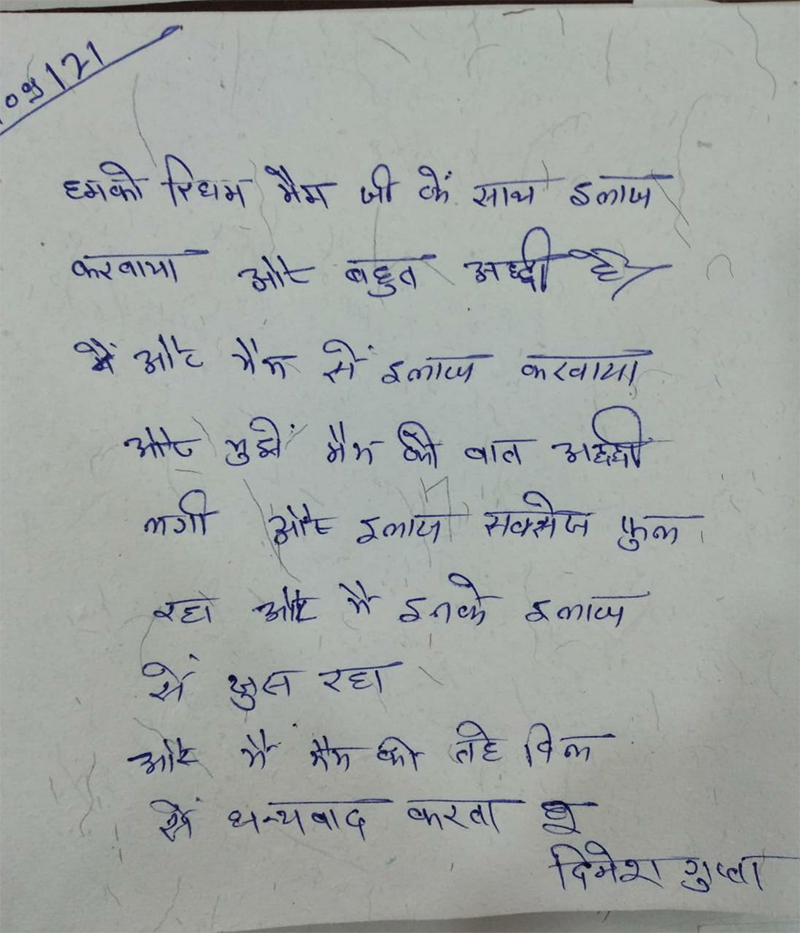 09/21
हमको रिधम मैम जी कें साथ इलाज
करवाया और बहुत अच्छी है
मैं और मैम सें इलाज करवाया
और मुझें मैम की बात अच्छी
लगी और इलाज सक्सेज फुल
रहा और मै इनके इलाज
सें खुस रहा
और मै मैम की तहे दिल
सें धन्यवाद करता हू
दिनेश गुप्ता